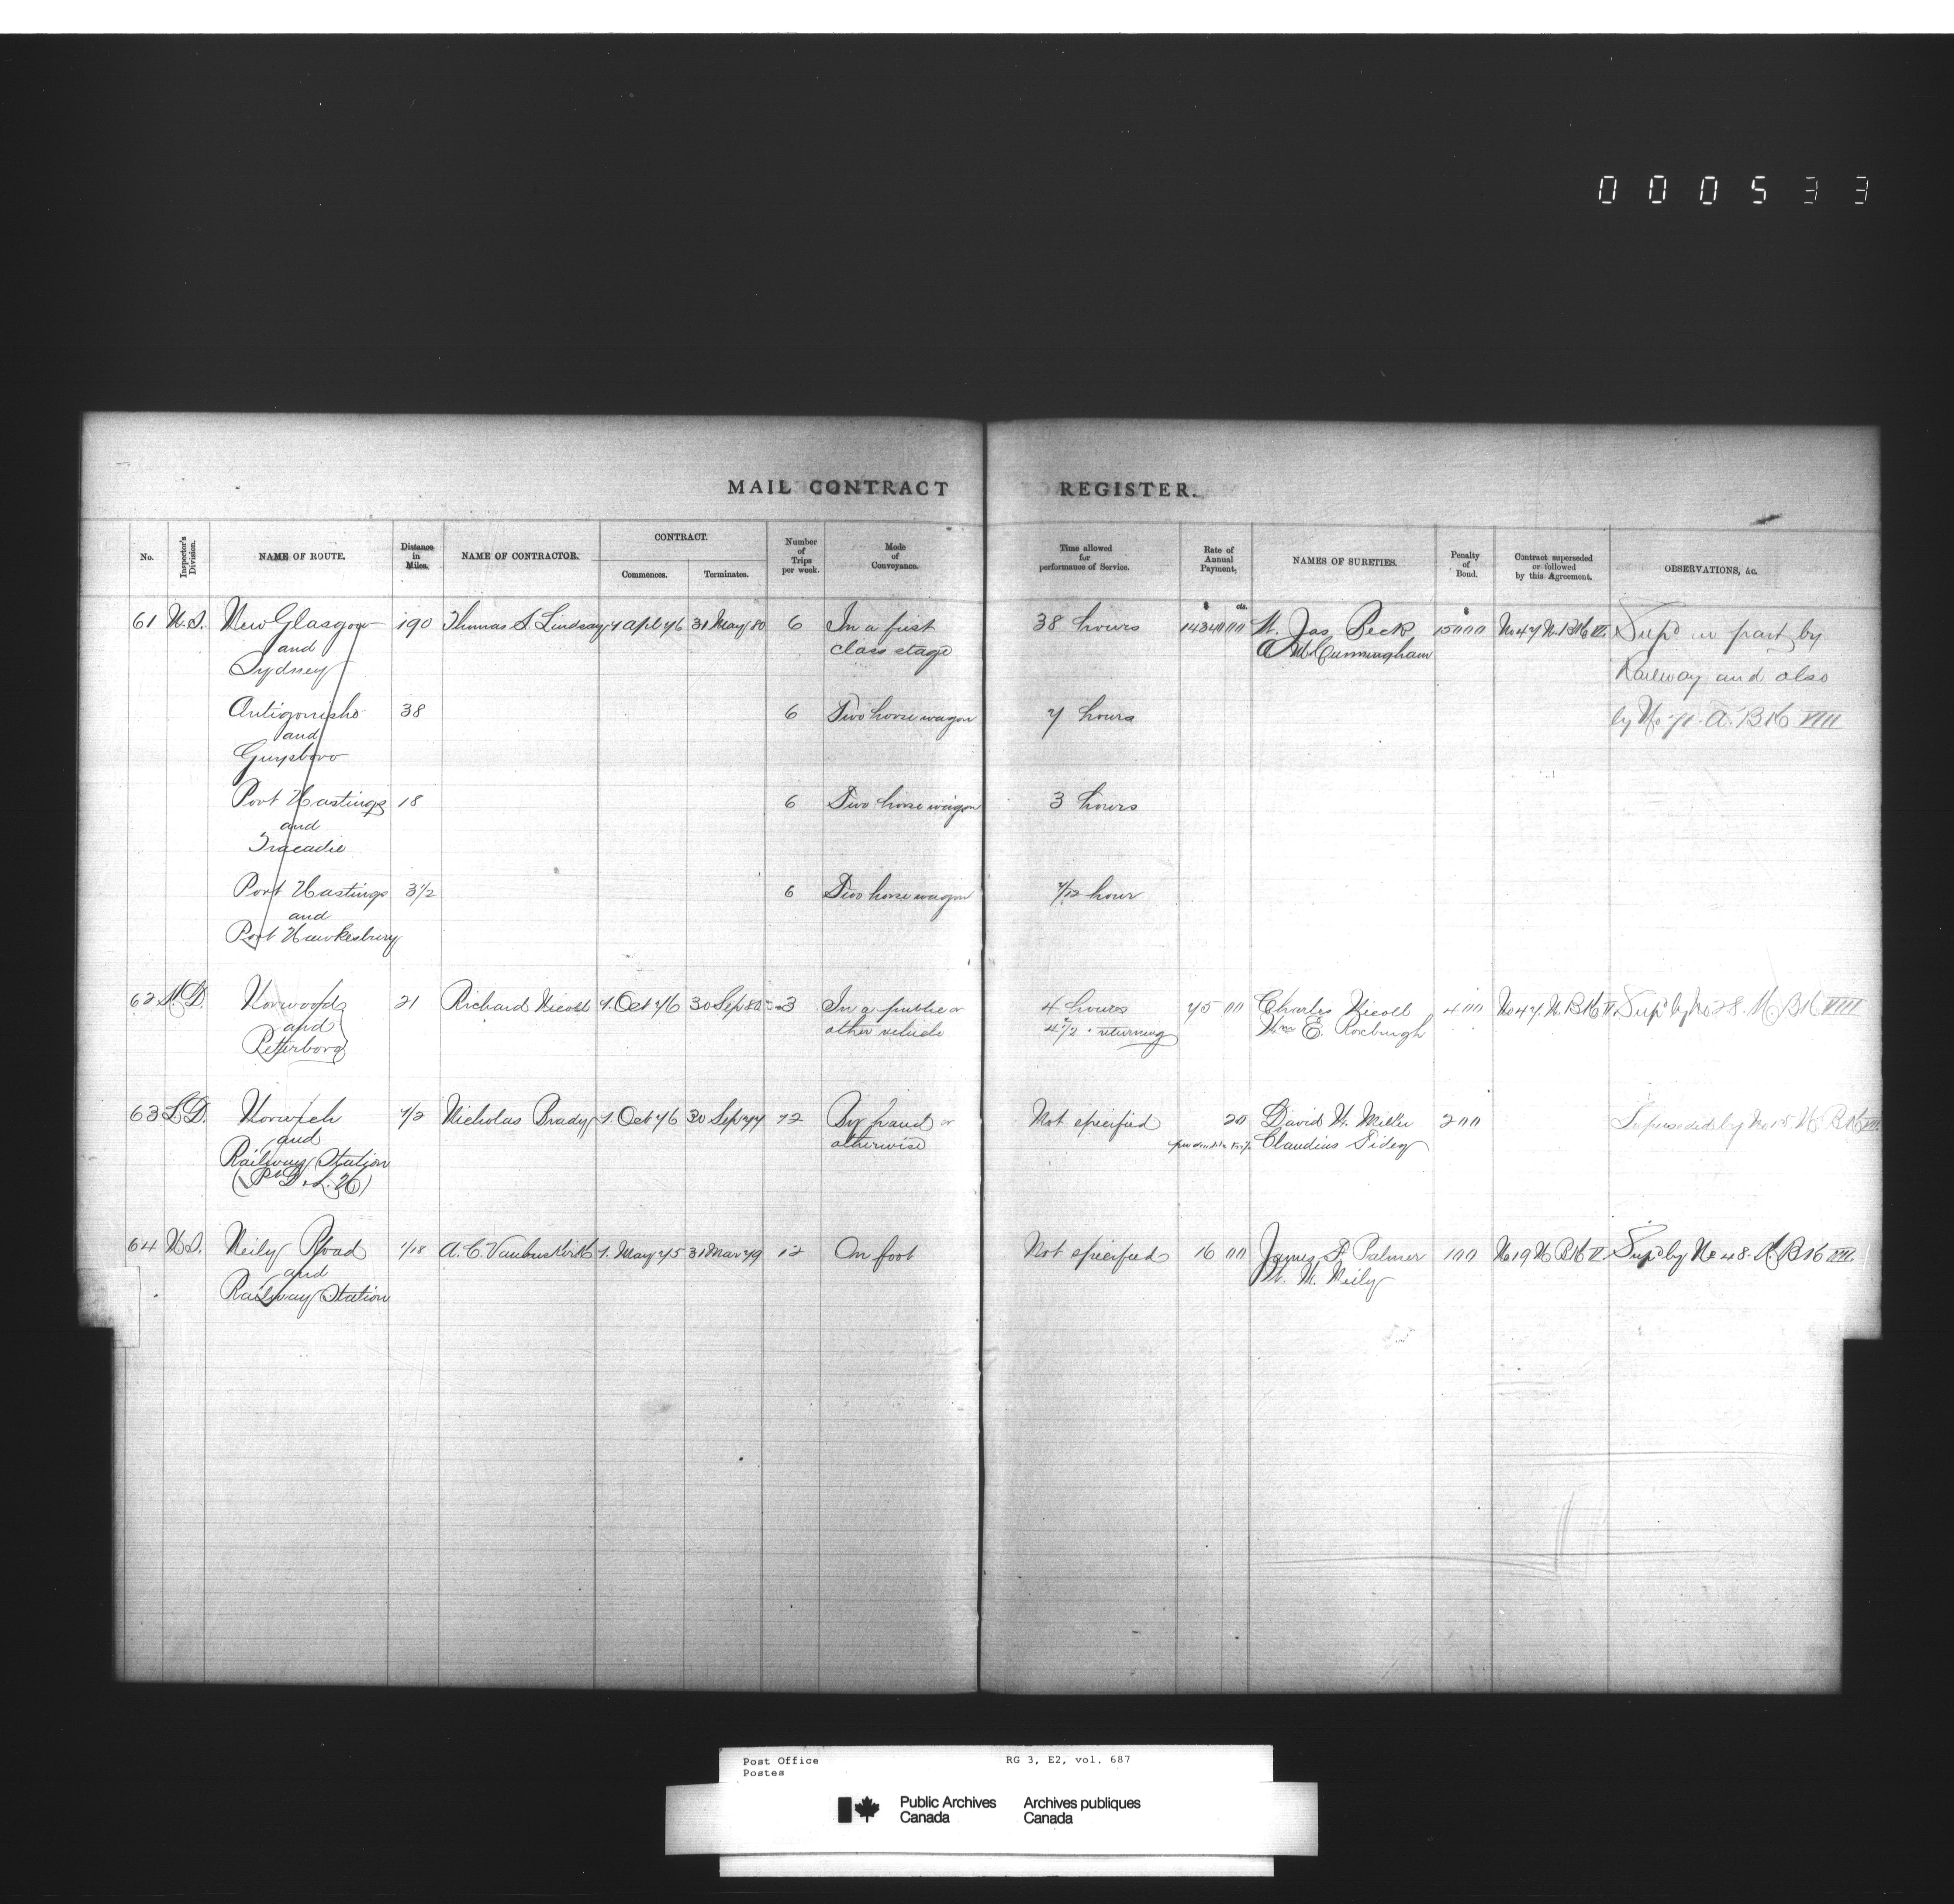 000533
MAIL CONTRACT REGISTER.
No. Inspector's Division. NAME OF ROUTE. Distance in Miles. NAME OF CONTRACTOR. CONTRACT. Commences. Terminates. Number of Trips per week. Mode of Conveyance. Time allowed for performance of Service. Rate of Annual Payment, NAMES OF SURETIES. Penalty of Bond. Contract superseded or followed by this Agreement. OBSERVATIONS, &c.
$ cts. $
61 N.S. New Glasgow 190 Thomas S. Lindsay 1 Apl 76 31 May 80 6 In a first 38 hours 14340 00 Jas Peck 15000 No 47 N. Bk VI Supd in part by
and class stage Cunningham
Sydney Railway and also
Antigonishe 38 6 Two horse wagon 7 hours by No 71. A. Bk VIII
and
Guysboro
Port Hastings 18 6 Two horse wagon 3 hours
and
Tracadie
Port Hastings 3 1/2 6 Two horse wagon 7/12 hour
and
Port Hawkesbury
62 Norwood 21 Richard Nicoll 1. Oct 76 30 Sep 80 3 In a public or 4 hours 75 00 Charles Nicoll 400 No 47. N. Bk V Supd by No 28. Bk VIII
and other vehicle 4 1/2 " returning Wm E. Roxburgh
Petterboro
63 L.D. Norwich 1/2 Nicholas Brady 1. Oct 76 30 Sep 77 12 By hand or Not specified 20 David W. Miller 200 Superseded by No 15 N. Bk VII
and otherwise Claudius Sidey
Railway Station
(Pt D. & L. H)
64 N.S. Neily Road 1/18 A. C. Vanbuskirk 1. May 75 31 Mar 79 12 On foot Not specified 16 00 James P. Palmer 100 No 19 N Bk V Supd by No 48. Bk VIII
and W. M. Neily
Railway Station
Post Office RG 3, E2, vol. 687
Postes
Public Archives Archives publiques
Canada Canada